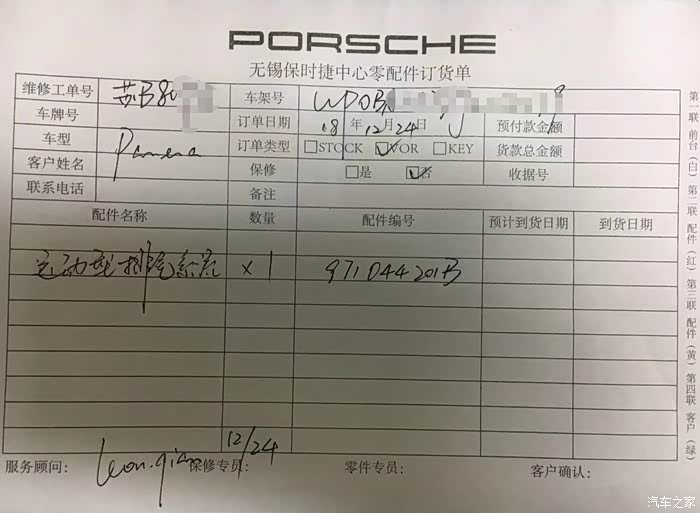 PORSCHE
无锡保时捷中心零配件订货单
维修工单号 苏B80 车架号 WP0B
车牌号 订单日期 18年12月24日 预付款金额
车型 Panamera 订单类型 □STOCK ☑VOR □KEY 货款总金额
客户姓名 保修 □是 ☑否 收据号
联系电话 备注
配件名称 数量 配件编号 预计到货日期 到货日期
运动型排气系统 ×1 971044201B
12/24
服务顾问: leon.qian 保修专员: 零件专员: 客户确认:
第一联 前台(白) 第二联 配件(红) 第三联 配件(黄) 第四联 客户(绿)
汽车之家